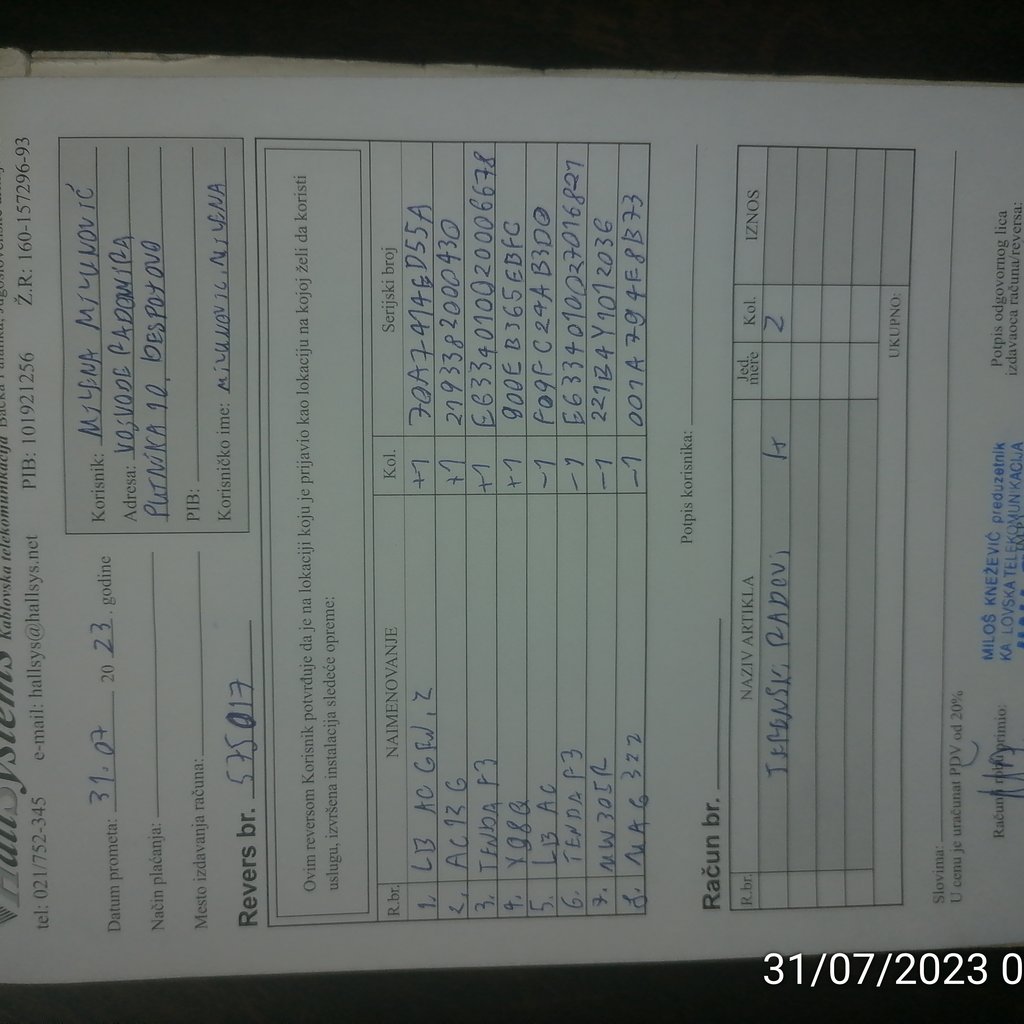 HallSystems Kablovska telekomunikacija
tel: 021/752-345 e-mail: hallsys@hallsys.net PIB: 101921256 Ž.R: 160-157296-93
Datum prometa: 31.07 2023. godine
Način plaćanja:
Mesto izdavanja računa:
Korisnik: MILJENA MILUNOVIĆ
Adresa: VOJVODE RADOMIRA
PUTNIKA 10, DESPOTOVO
PIB:
Korisničko ime:
Revers br. 575017
Ovim reversom Korisnik potvrđuje da je na lokaciji koju je prijavio kao lokaciju na kojoj želi da koristi
uslugu, izvršena instalacija sledeće opreme:
R.br. NAIMENOVANJE Kol. Serijski broj
1. LB AC GEN, 2 +1
2. AC12 G +1 2193382000430
3. TENDA F3 +1 E6334010020006678
4. X98Q +1 900EB365EBFC
5. LB AC -1 F09FC24AB3D0
6. TENDA F3 -1 E6334010027016827
7. MW305R -1 221B4Y1012036
8. MAG 322 -1 001A794E8B73
Potpis korisnika:
Račun br.
R.br. NAZIV ARTIKLA Jed. mere Kol. IZNOS
TERENSKI RADOVI 2
UKUPNO:
Slovima:
U cenu je uračunat PDV od 20%
Račun i robu primio:
MILOŠ KNEŽEVIĆ preduzetnik
KABLOVSKA TELEKOMUNIKACIJA
Potpis odgovornog lica
izdavaoca računa/reversa:
31/07/2023 0